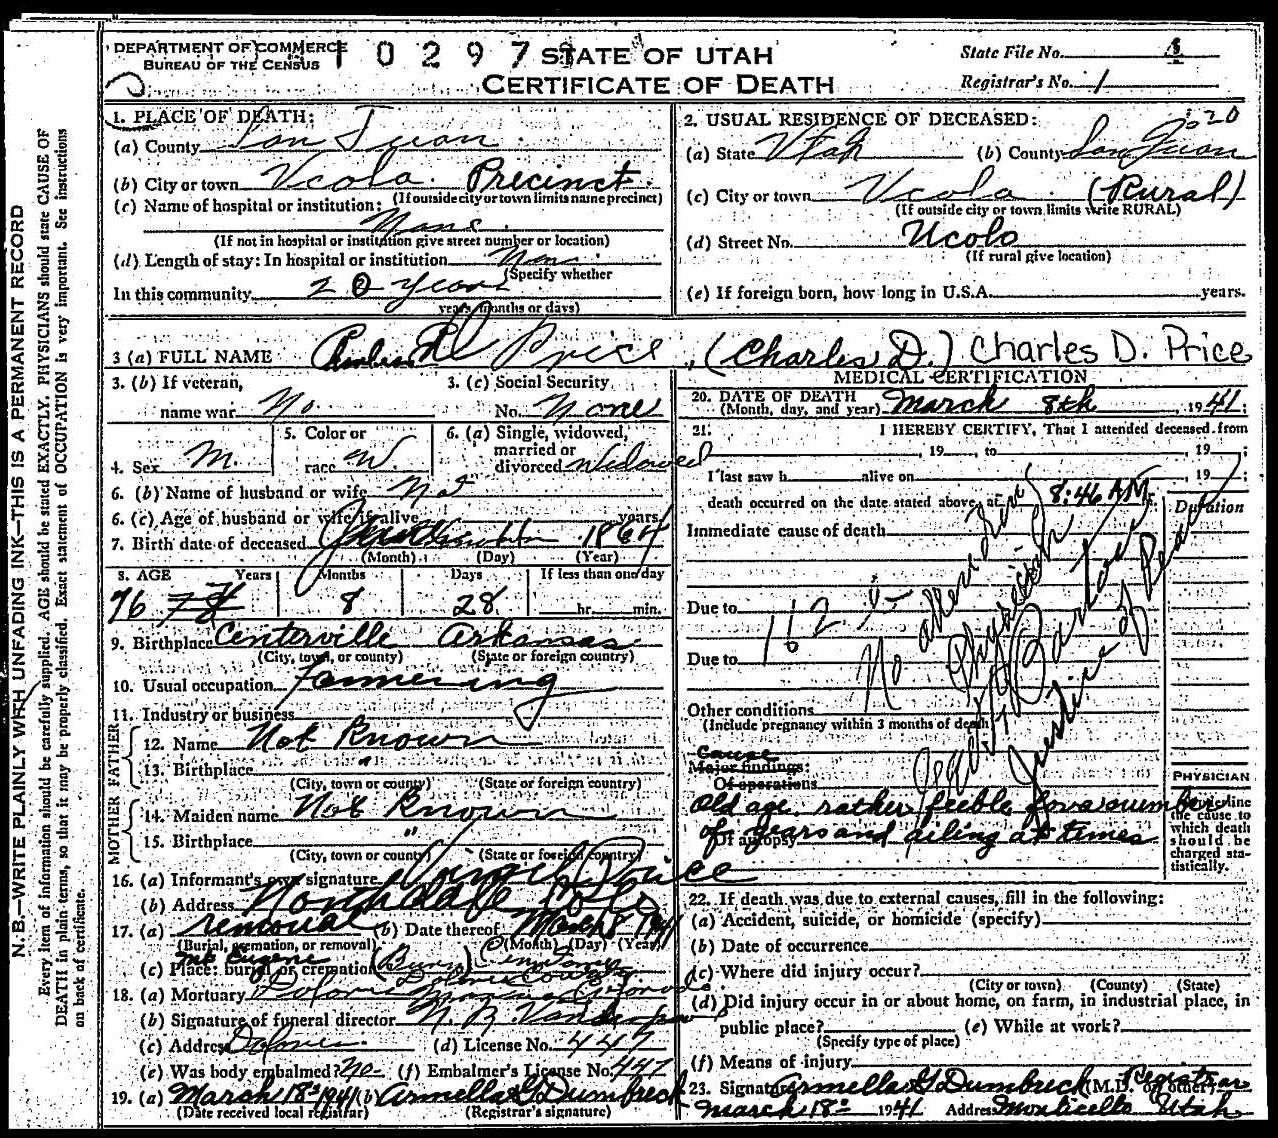 DEPARTMENT OF COMMERCE
BUREAU OF THE CENSUS
10297
STATE OF UTAH
CERTIFICATE OF DEATH
State File No. 4
Registrar's No. 1
N. B.—WRITE PLAINLY WITH UNFADING INK—THIS IS A PERMANENT RECORD
Every item of information should be carefully supplied. AGE should be stated EXACTLY. PHYSICIANS should state CAUSE OF
DEATH in plain terms, so that it may be properly classified. Exact statement of OCCUPATION is very important. See instructions
on back of certificate.
1. PLACE OF DEATH:
(a) County San Juan
(b) City or town Ucolo Precinct
(If outside city or town limits name precinct)
(c) Name of hospital or institution:
None
(If not in hospital or institution give street number or location)
(d) Length of stay: In hospital or institution None
(Specify whether
In this community 20 years
years, months or days)
2. USUAL RESIDENCE OF DECEASED:
(a) State Utah (b) County San Juan
(c) City or town Ucolo (Rural)
(If outside city or town limits write RURAL)
(d) Street No. Ucolo
(If rural give location)
(e) If foreign born, how long in U.S.A. years.
3 (a) FULL NAME Price, (Charles D.) Charles D. Price
3. (b) If veteran,
name war No
3. (c) Social Security
No. None
4. Sex M.
5. Color or
race W.
6. (a) Single, widowed,
married or
divorced Widowed
6. (b) Name of husband or wife Not
6. (c) Age of husband or wife if alive years
7. Birth date of deceased 1864
(Month) (Day) (Year)
8. AGE Years Months Days If less than one day
76 8 28 hr. min.
9. Birthplace Centerville Arkansas
(City, town, or county) (State or foreign country)
10. Usual occupation Farmering
11. Industry or business
FATHER
12. Name Not Known
13. Birthplace "
(City, town or county) (State or foreign country)
MOTHER
14. Maiden name Not Known
15. Birthplace "
(City, town or county) (State or foreign country)
16. (a) Informant's own signature Virgil Price
(b) Address Northdale Colo
17. (a) removal (b) Date thereof March 8 1941
(Burial, cremation, or removal) (Month) (Day) (Year)
(c) Place: burial or cremation
18. (a) Mortuary
(b) Signature of funeral director
(c) Address Dolores (d) License No. 447
(e) Was body embalmed? No (f) Embalmer's License No. 447
19. (a) March 18th 1941 (b) Armella G Dumbreck
(Date received local registrar) (Registrar's signature)
MEDICAL CERTIFICATION
20. DATE OF DEATH
(Month, day, and year) March 8th, 1941;
21. I HEREBY CERTIFY, That I attended deceased from
, 19 , to , 19 ;
I last saw h alive on , 19 ;
death occurred on the date stated above, at 8:46 AM.
Immediate cause of death
Duration
Due to
162.5
Due to
No
Physician
Justice of Peace
Other conditions
(Include pregnancy within 3 months of death)
Cause
Major findings:
Of operations
Old age, rather feeble for a number
of years and ailing at times
Of autopsy
PHYSICIAN
Underline
the cause to
which death
should be
charged sta-
tistically.
22. If death was due to external causes, fill in the following:
(a) Accident, suicide, or homicide (specify)
(b) Date of occurrence
(c) Where did injury occur?
(City or town) (County) (State)
(d) Did injury occur in or about home, on farm, in industrial place, in
public place? (e) While at work?
(Specify type of place)
(f) Means of injury
23. Signature Armella G Dumbreck (M.D. or other) Registrar
March 18th 1941 Address Monticello Utah